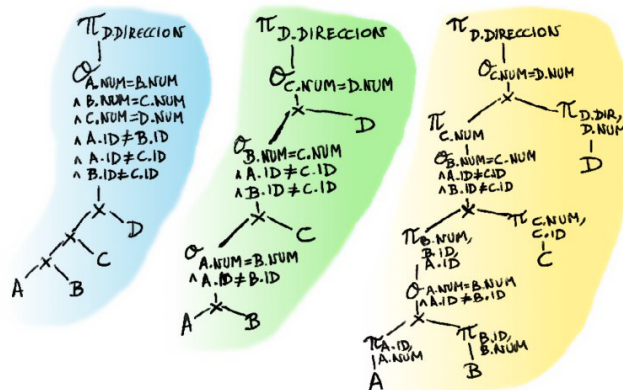 π D.DIRECCION
σ A.NUM=B.NUM
∧ B.NUM=C.NUM
∧ C.NUM=D.NUM
∧ A.ID≠B.ID
∧ A.ID≠C.ID
∧ B.ID≠C.ID
×
× D
× C
A B
π D.DIRECCION
σ C.NUM=D.NUM
×
D
σ B.NUM=C.NUM
∧ A.ID≠C.ID
∧ B.ID≠C.ID
×
C
σ A.NUM=B.NUM
∧ A.ID≠B.ID
×
A B
π D.DIRECCION
σ C.NUM=D.NUM
×
π D.DIR,
D.NUM
D
π C.NUM
σ B.NUM=C.NUM
∧ A.ID≠C.ID
∧ B.ID≠C.ID
×
π C.NUM,
C.ID
C
π B.NUM,
B.ID,
A.ID
σ A.NUM=B.NUM
∧ A.ID≠B.ID
×
π A.ID,
A.NUM
A
π B.ID,
B.NUM
B